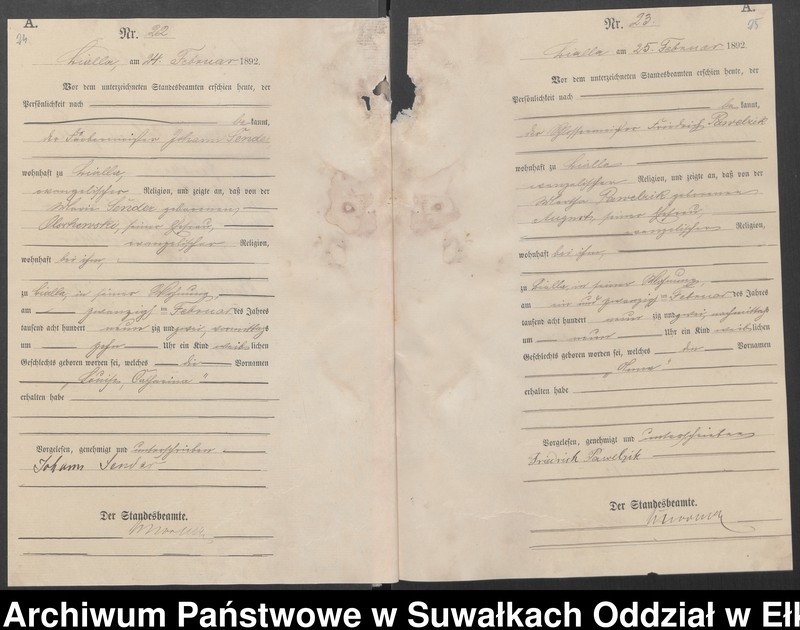 A.
24
Nr. 22
Bialla, am 24 Februar 1892.
Vor dem unterzeichneten Standesbeamten erschien heute, der
Persönlichkeit nach
be kannt,
der Johann Sender
wohnhaft zu Bialla,
evangelischer Religion, und zeigte an, daß von der
Marie Sender geborenen
seiner Ehefrau,
evangelischer Religion,
wohnhaft bei ihm,
zu Bialla, in seiner Wohnung,
am zwanzigsten Februar des Jahres
tausend acht hundert neunzig und zwei, vormittags
um zehn Uhr ein Kind weiblichen
Geschlechts geboren worden sei, welches die Vornamen
„Louise, Catharina“
erhalten habe
Vorgelesen, genehmigt und unterschrieben
Johann Sender
Der Standesbeamte.
A.
25
Nr. 23.
Bialla am 25 Februar 1892.
Vor dem unterzeichneten Standesbeamten erschien heute, der
Persönlichkeit nach
be kannt,
der Schlossermeister Friedrich Pawelzik
wohnhaft zu Bialla
evangelischer Religion, und zeigte an, daß von der
Martha Pawelzik geborenen
August, seiner Ehefrau,
evangelischer Religion,
wohnhaft bei ihm,
zu Bialla in seiner Wohnung,
am ein und zwanzigsten Februar des Jahres
tausend acht hundert neunzig und zwei, nachmittags
um neun Uhr ein Kind weiblichen
Geschlechts geboren worden sei, welches den Vornamen
erhalten habe
Vorgelesen, genehmigt und unterschrieben
Friedrich Pawelzik
Der Standesbeamte.
Archiwum Państwowe w Suwałkach Oddział w Ełk